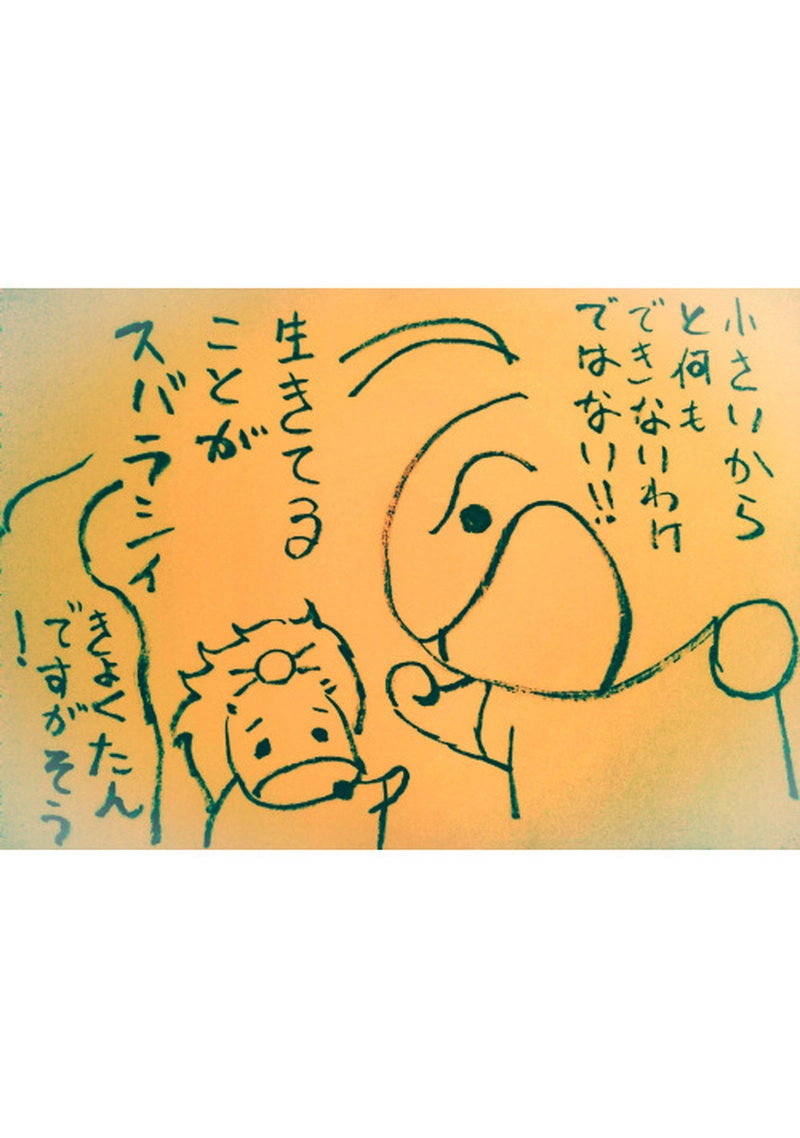 小さいから
と何も
できないわけ
ではない!!
生きてる
ことが
スバラシィ
きょくたん
ですがそう
!